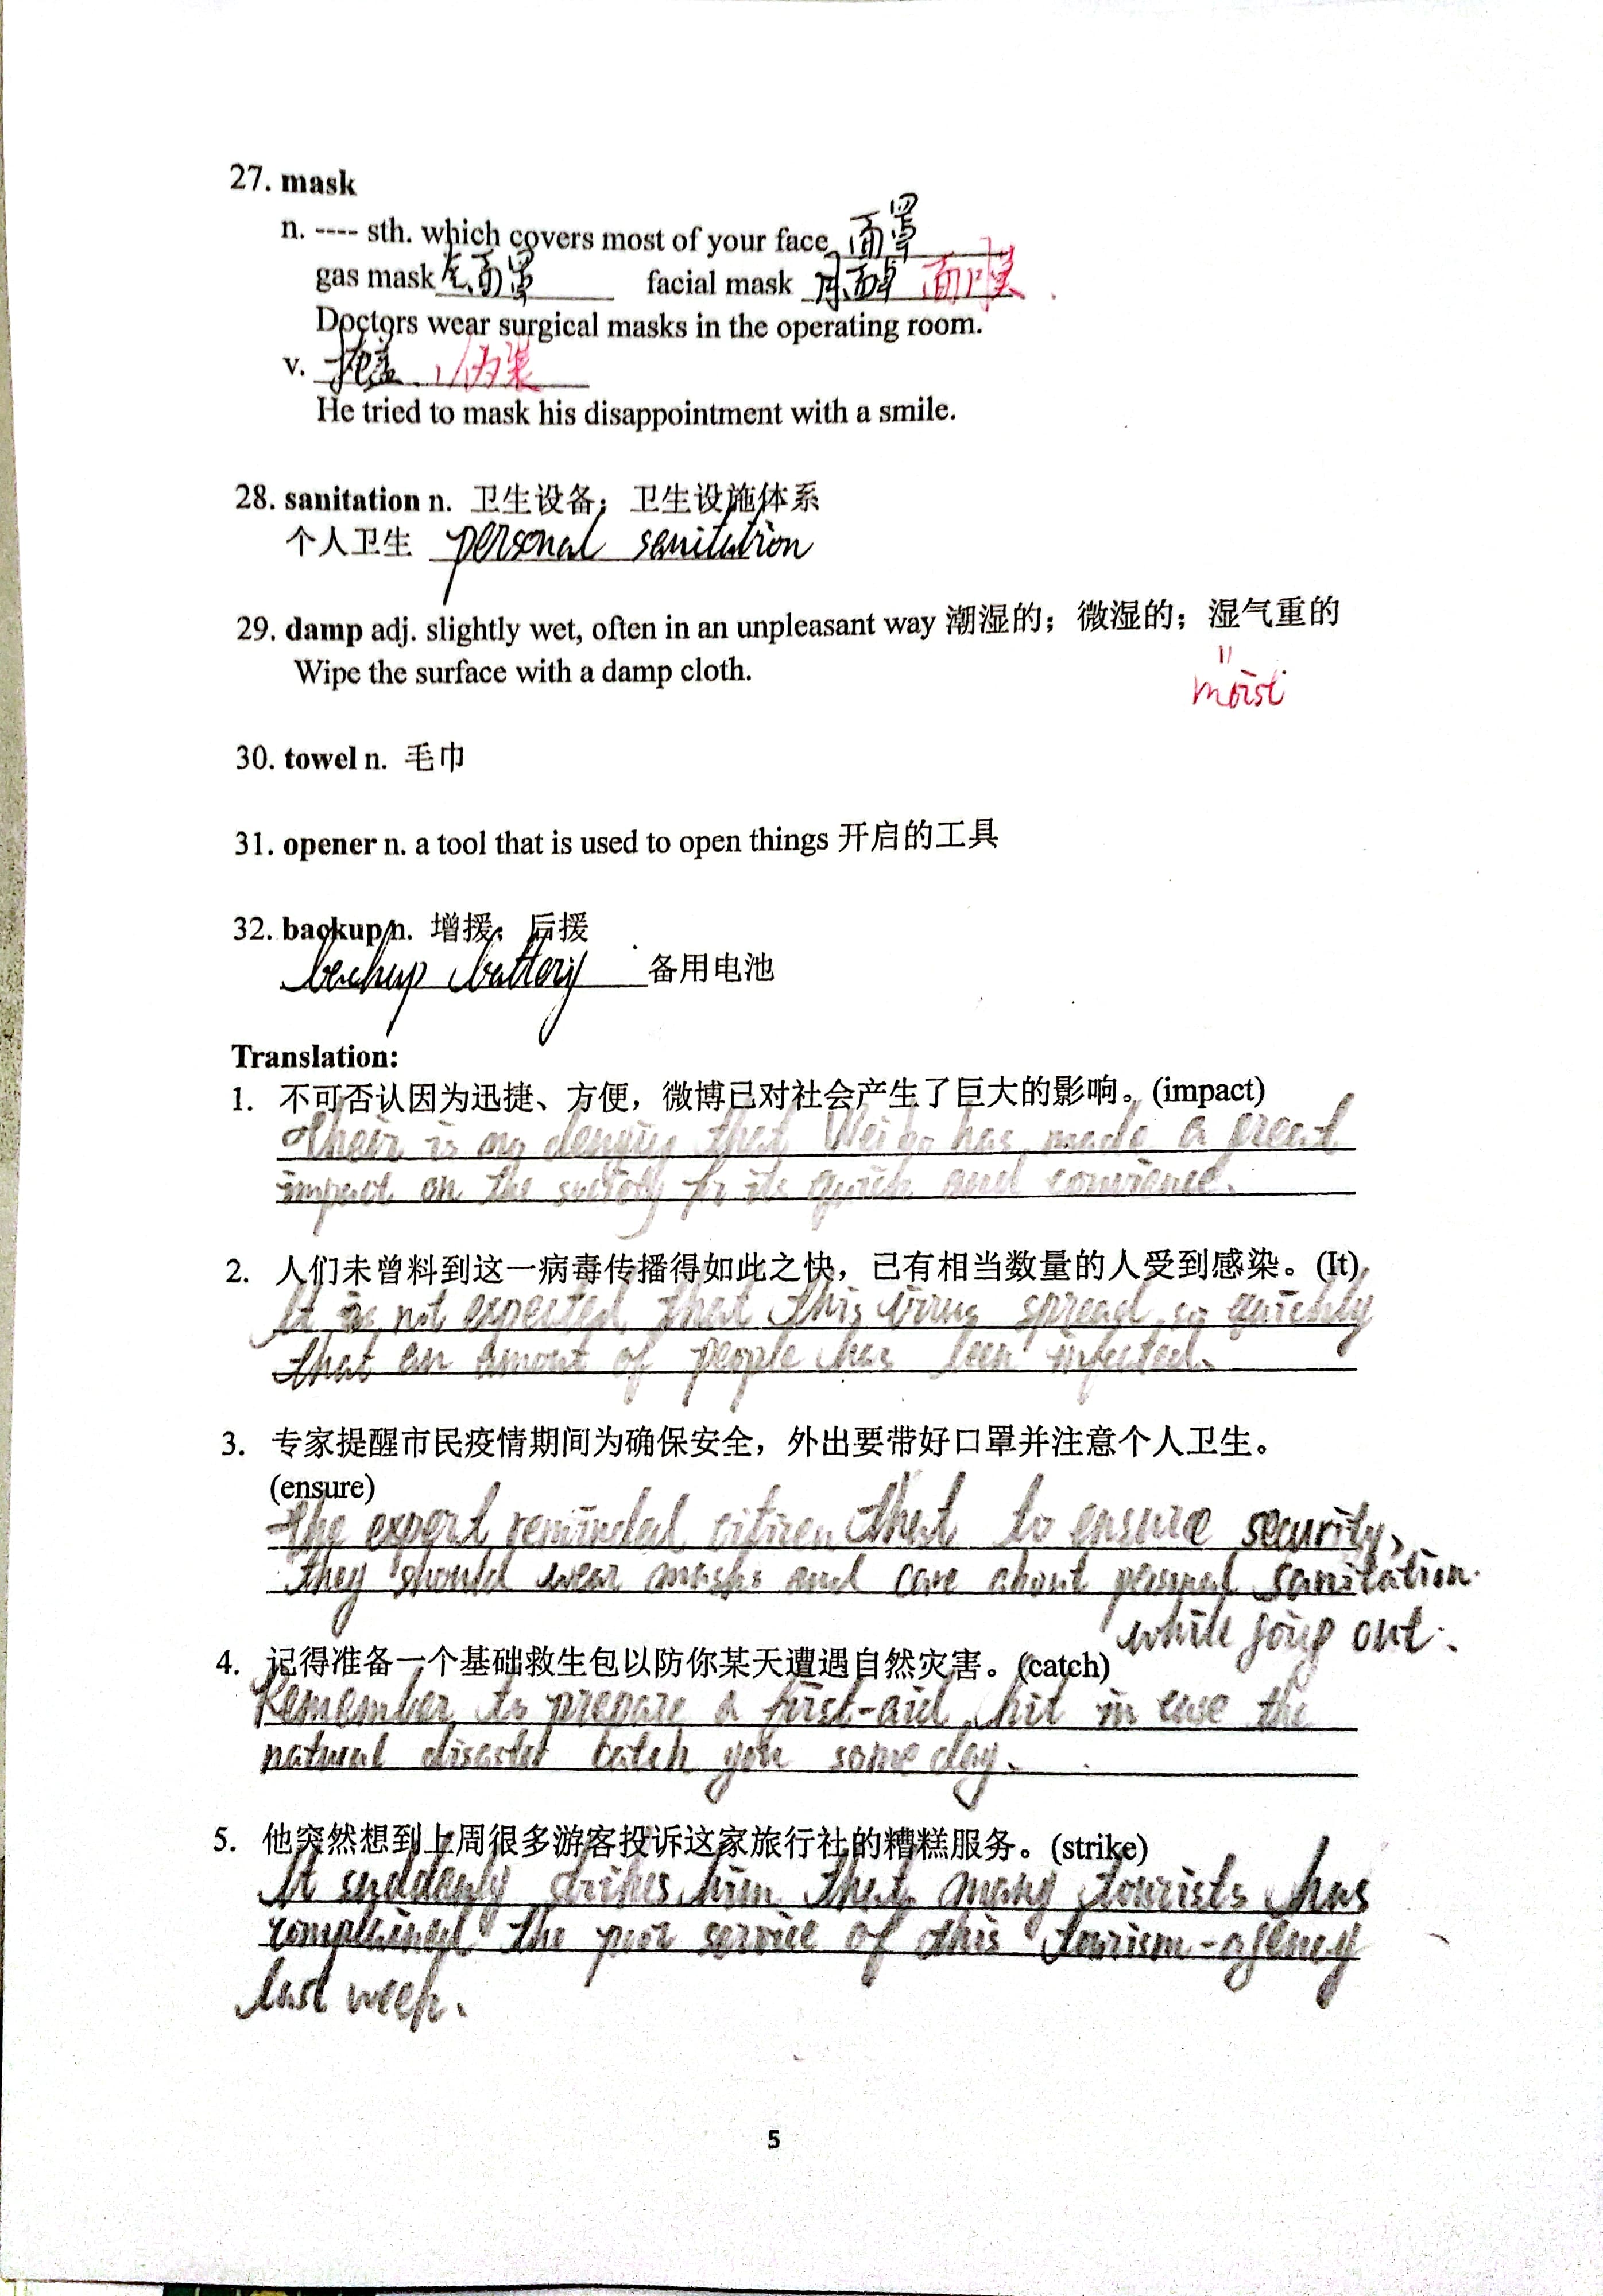 27. mask
n. ---- sth. which covers most of your face 面罩
gas mask 气面罩 facial mask 面膜
Doctors wear surgical masks in the operating room.
v. 掩盖 伪装
He tried to mask his disappointment with a smile.
28. sanitation n. 卫生设备；卫生设施体系
个人卫生 personal sanitation
29. damp adj. slightly wet, often in an unpleasant way 潮湿的；微湿的；湿气重的
Wipe the surface with a damp cloth.
moist
30. towel n. 毛巾
31. opener n. a tool that is used to open things 开启的工具
32. backup n. 增援；后援
backup battery 备用电池
Translation:
1. 不可否认因为迅捷、方便，微博已对社会产生了巨大的影响。(impact)
Their is no denying that Weibo has made a great
impact on the society for its quick and convience.
2. 人们未曾料到这一病毒传播得如此之快，已有相当数量的人受到感染。(It)
It is not expected that this virus spread so quickly
that an amout of people has been infected.
3. 专家提醒市民疫情期间为确保安全，外出要带好口罩并注意个人卫生。
(ensure)
The expert reminded citizen that to ensure security,
they should wear masks and care about personal sanitation
while going out.
4. 记得准备一个基础救生包以防你某天遭遇自然灾害。(catch)
Remember to prepare a first-aid kit in case the
natural disaster catch you someday.
5. 他突然想到上周很多游客投诉这家旅行社的糟糕服务。(strike)
It suddenly strikes him that many tourists has
complained the poor service of this tourism-agency
last week.
5